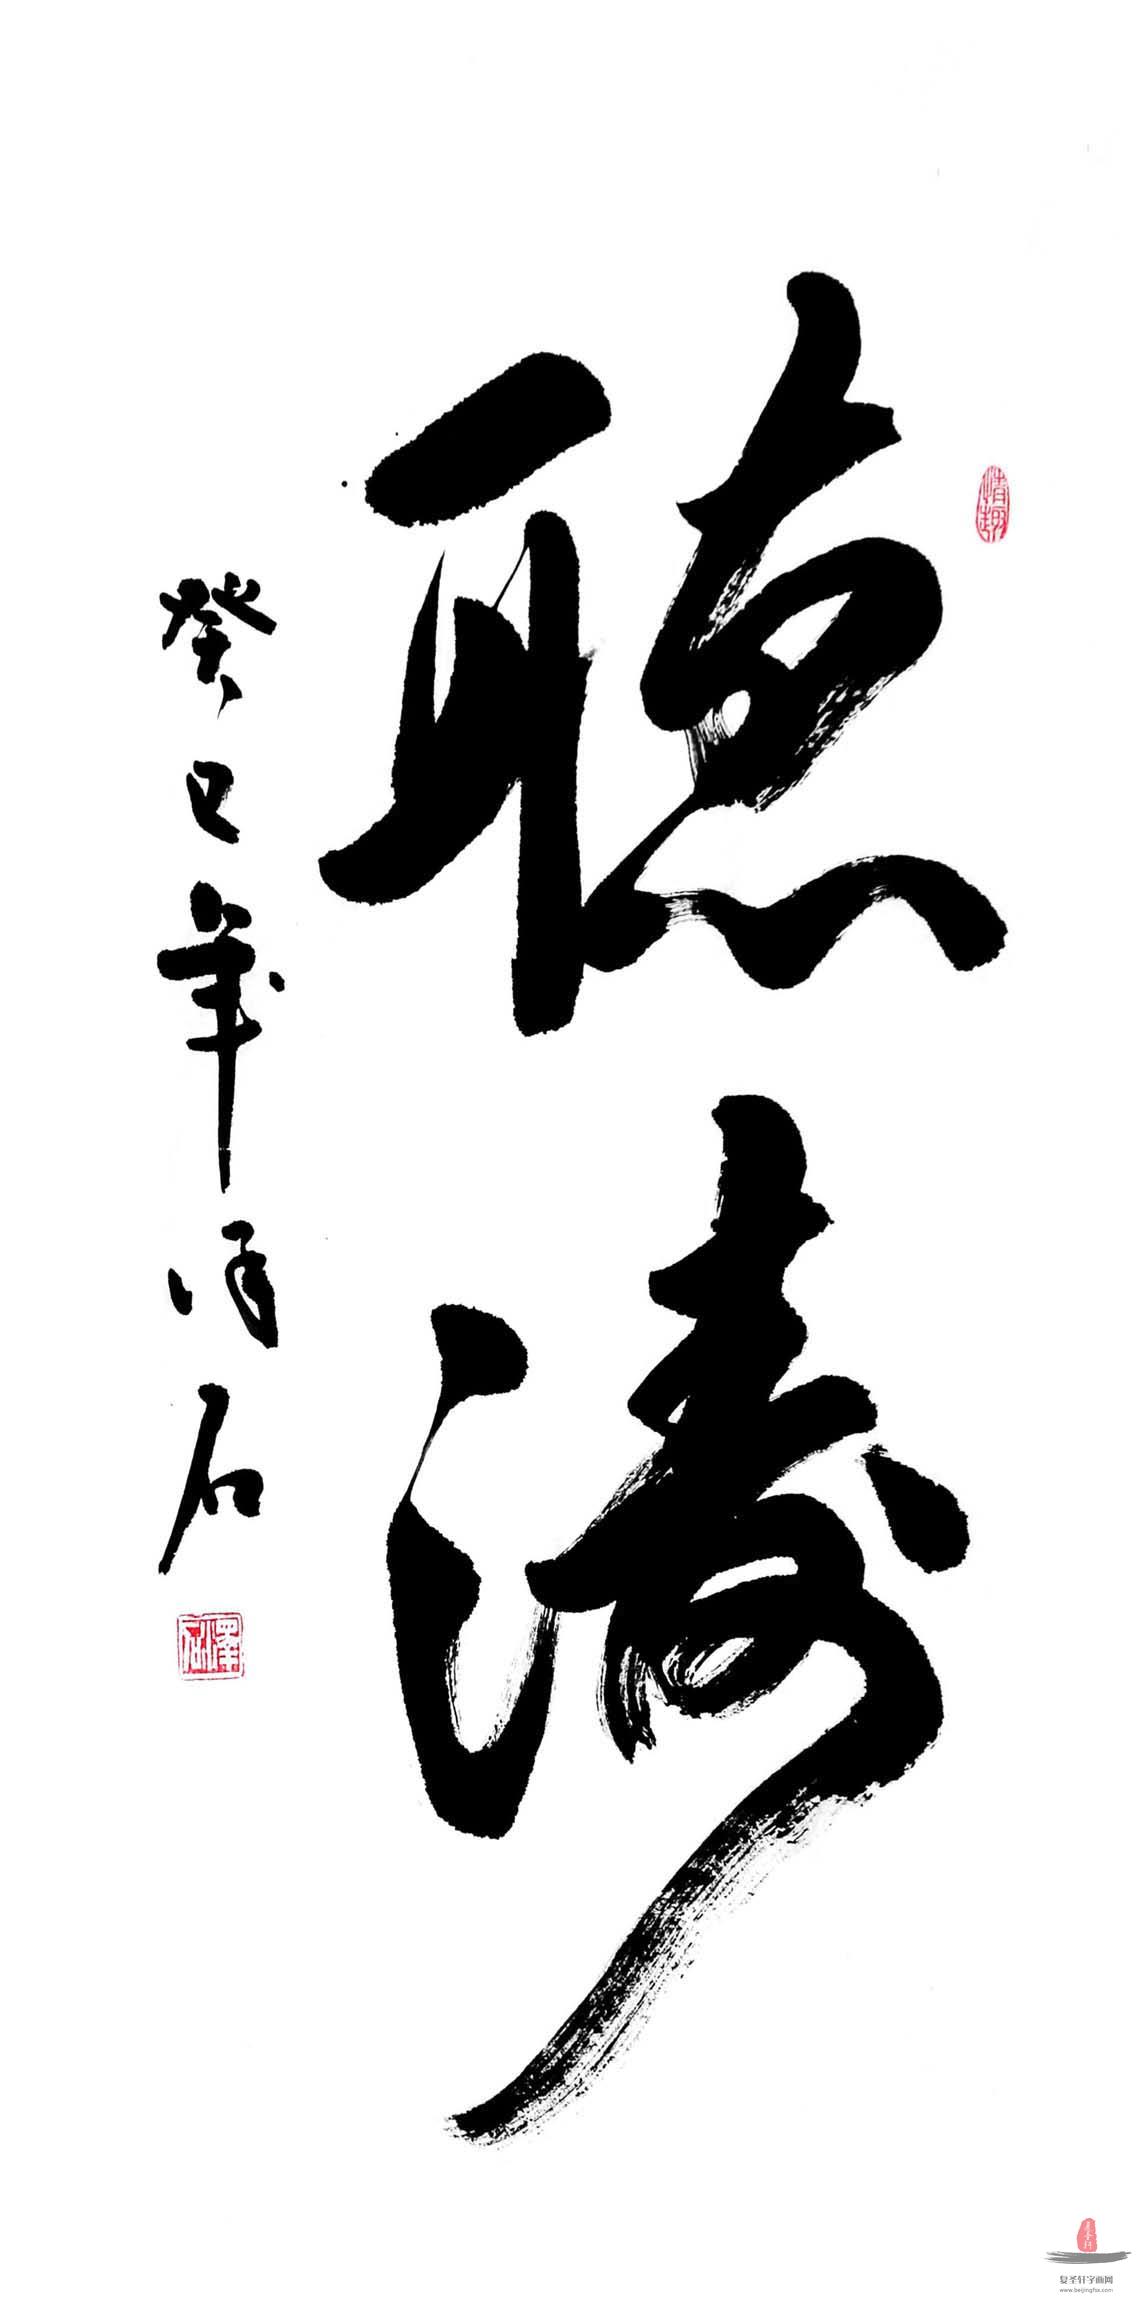 聽濤
癸巳年澤石
情趣
澤石
复圣轩字画网
www.beijingfsx.com